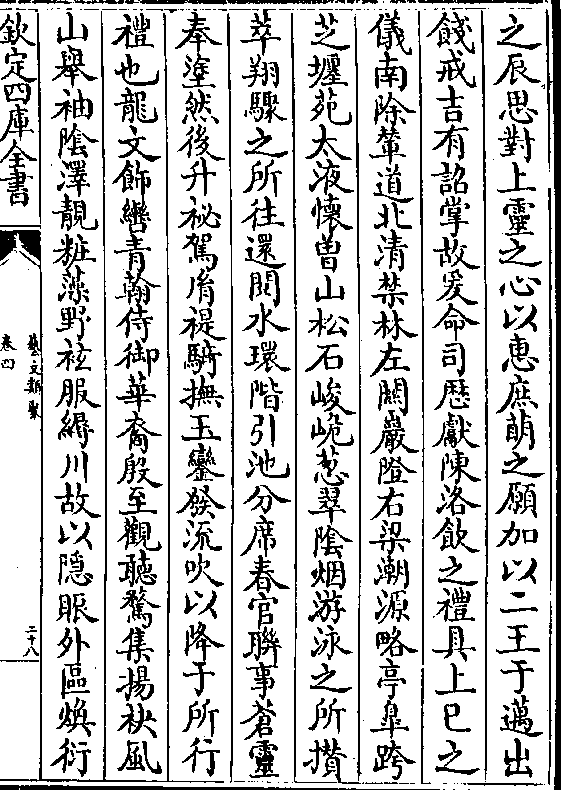 之辰思對上靈之心以惠庶萌之願加以二王于邁出
餞戒吉有詔掌故爰命司歴獻陳洛飲之禮具上巳之
儀南除輦道北清禁林左關巖隥右梁潮源略亭臯跨
芝壥苑太液懷曽山松石峻垝葱翠陰烟游泳之所攅
萃翔驟之所往還閲水環階引池分席春官聯事蒼靈
奉塗然後升祕駕𦙍禔騎撫玉鑾發流吹以降于所行
禮也龍文飾轡青翰侍御華裔殷至觀聽騖集揚袂風
山舉袖陰澤靚粧藻野袨服縟川故以隠賑外區煥衍
欽定四庫全書
藝文類聚
卷四
二十八